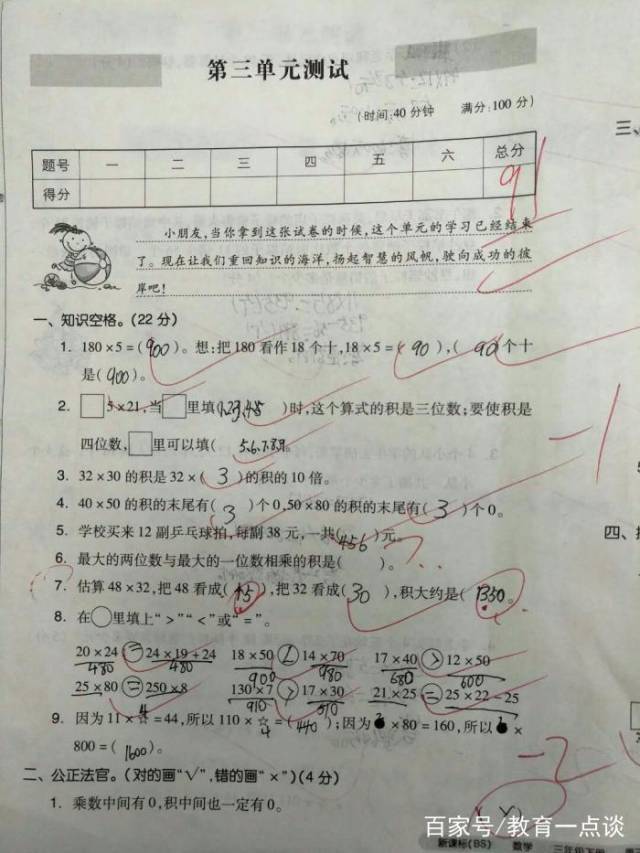 第三单元测试
(时间:40分钟 满分:100分)
题号 一 二 三 四 五 六 总分
得分 91
小朋友,当你拿到这张试卷的时候,这个单元的学习已经结束
了。现在让我们重回知识的海洋,扬起智慧的风帆,驶向成功的彼
岸吧!
一、知识空格。(22分)
1. 180×5=(900)。想:把180看作18个十,18×5=(90),(90)个十
是(900)。
2. □5×21,当□里填(1.2.3.4.5)时,这个算式的积是三位数;要使积是
四位数,□里可以填(5.6.7.8.9)。
-1
3. 32×30的积是32×(3)的积的10倍。
4. 40×50的积的末尾有(3)个0,50×80的积的末尾有(3)个0。
5. 学校买来12副乒乓球拍,每副38元,一共(456)元。
6. 最大的两位数与最大的一位数相乘的积是( )。
7. 估算48×32,把48看成(45),把32看成(30),积大约是(1350)。
8. 在○里填上“>”“<”或“=”。
20×24=24×19+24 18×50<14×70 17×40>12×50
480 480 900 980 680 600
25×80=250×8 130×7>17×30 21×25=25×22-25
4 910 510
9. 因为11×☆=44,所以110×☆=(440);因为 ×80=160,所以 ×
4
800=(1600)。
-2
二、公正法官。(对的画“√”,错的画“×”)(4分)
1. 乘数中间有0,积中间也一定有0。
三、
四、
百家号/教育一点谈
新课标(BS) 数学 三年级下册